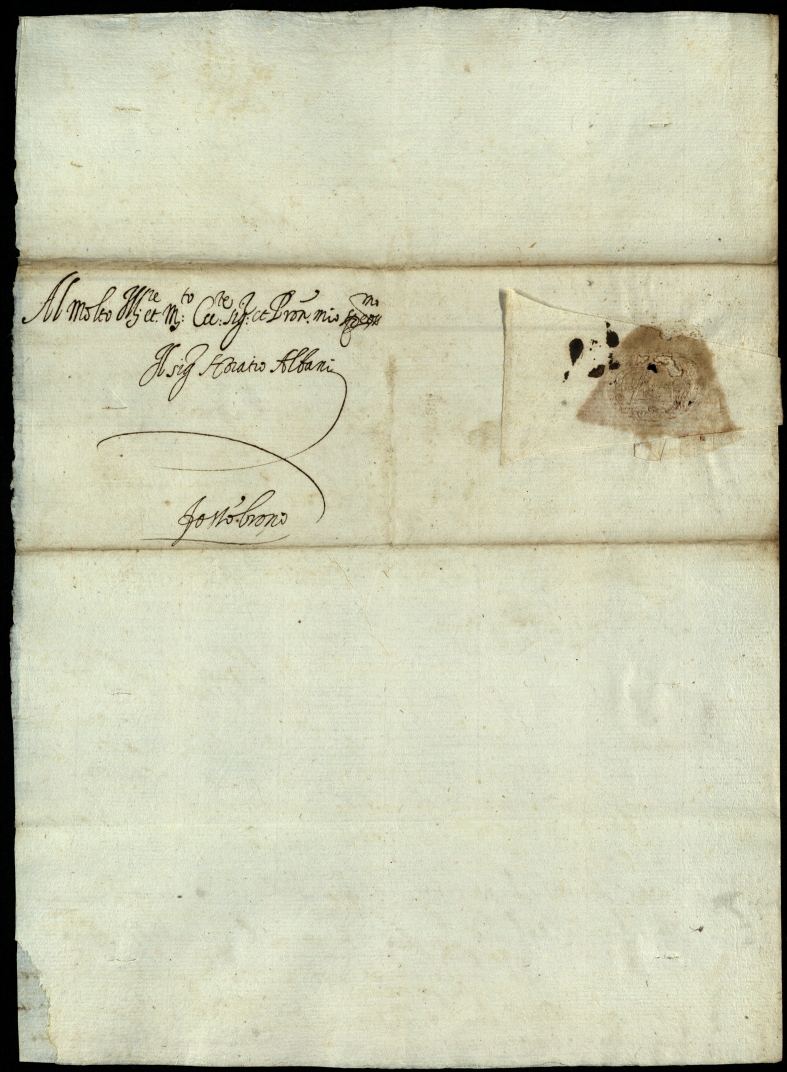 Al molto Ill:re et m:to Ecc:te Sig:r et Pron. mio
Il sig Horatio Albani